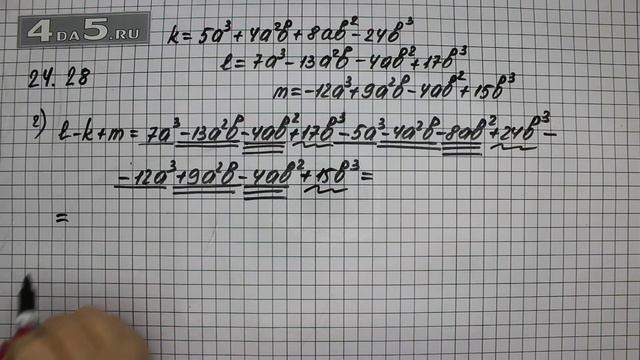 4DA5.RU
k = 5a³ + 4a²b + 8ab² - 24b³
24.28
l = 7a³ - 13a²b - 4ab² + 17b³
m = -12a³ + 9a²b - 4ab² + 15b³
г) l - k + m = 7a³ - 13a²b - 4ab² + 17b³ - 5a³ - 4a²b - 8ab² + 24b³ -
- 12a³ + 9a²b - 4ab² + 15b³ =
=